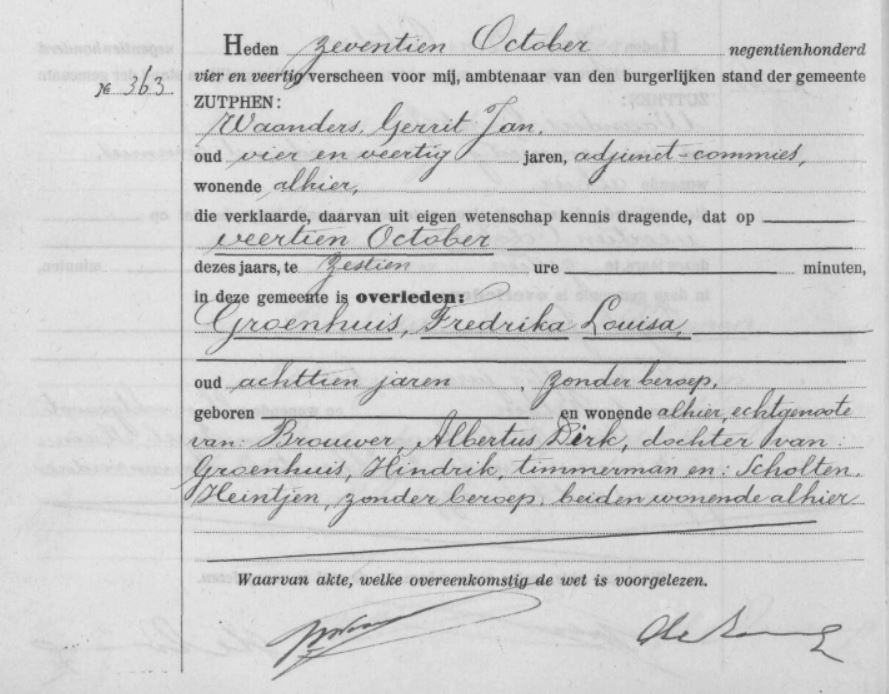 Heden zeventien October negentienhonderd
vier en veertig verscheen voor mij, ambtenaar van den burgerlijken stand der gemeente
№ 363
ZUTPHEN:
Waanders, Gerrit Jan,
oud vier en veertig jaren, adjunct-commies,
wonende alhier,
die verklaarde, daarvan uit eigen wetenschap kennis dragende, dat op
veertien October
dezes jaars, te zestien ure minuten,
in deze gemeente is overleden:
Groenhuis, Fredrika Louisa,
oud achttien jaren, zonder beroep,
geboren en wonende alhier, echtgenoote
van: Brouwer, Albertus Dirk, dochter van:
Groenhuis, Hindrik, timmerman en: Scholten,
Heintjen, zonder beroep, beiden wonende alhier
Waarvan akte, welke overeenkomstig de wet is voorgelezen.